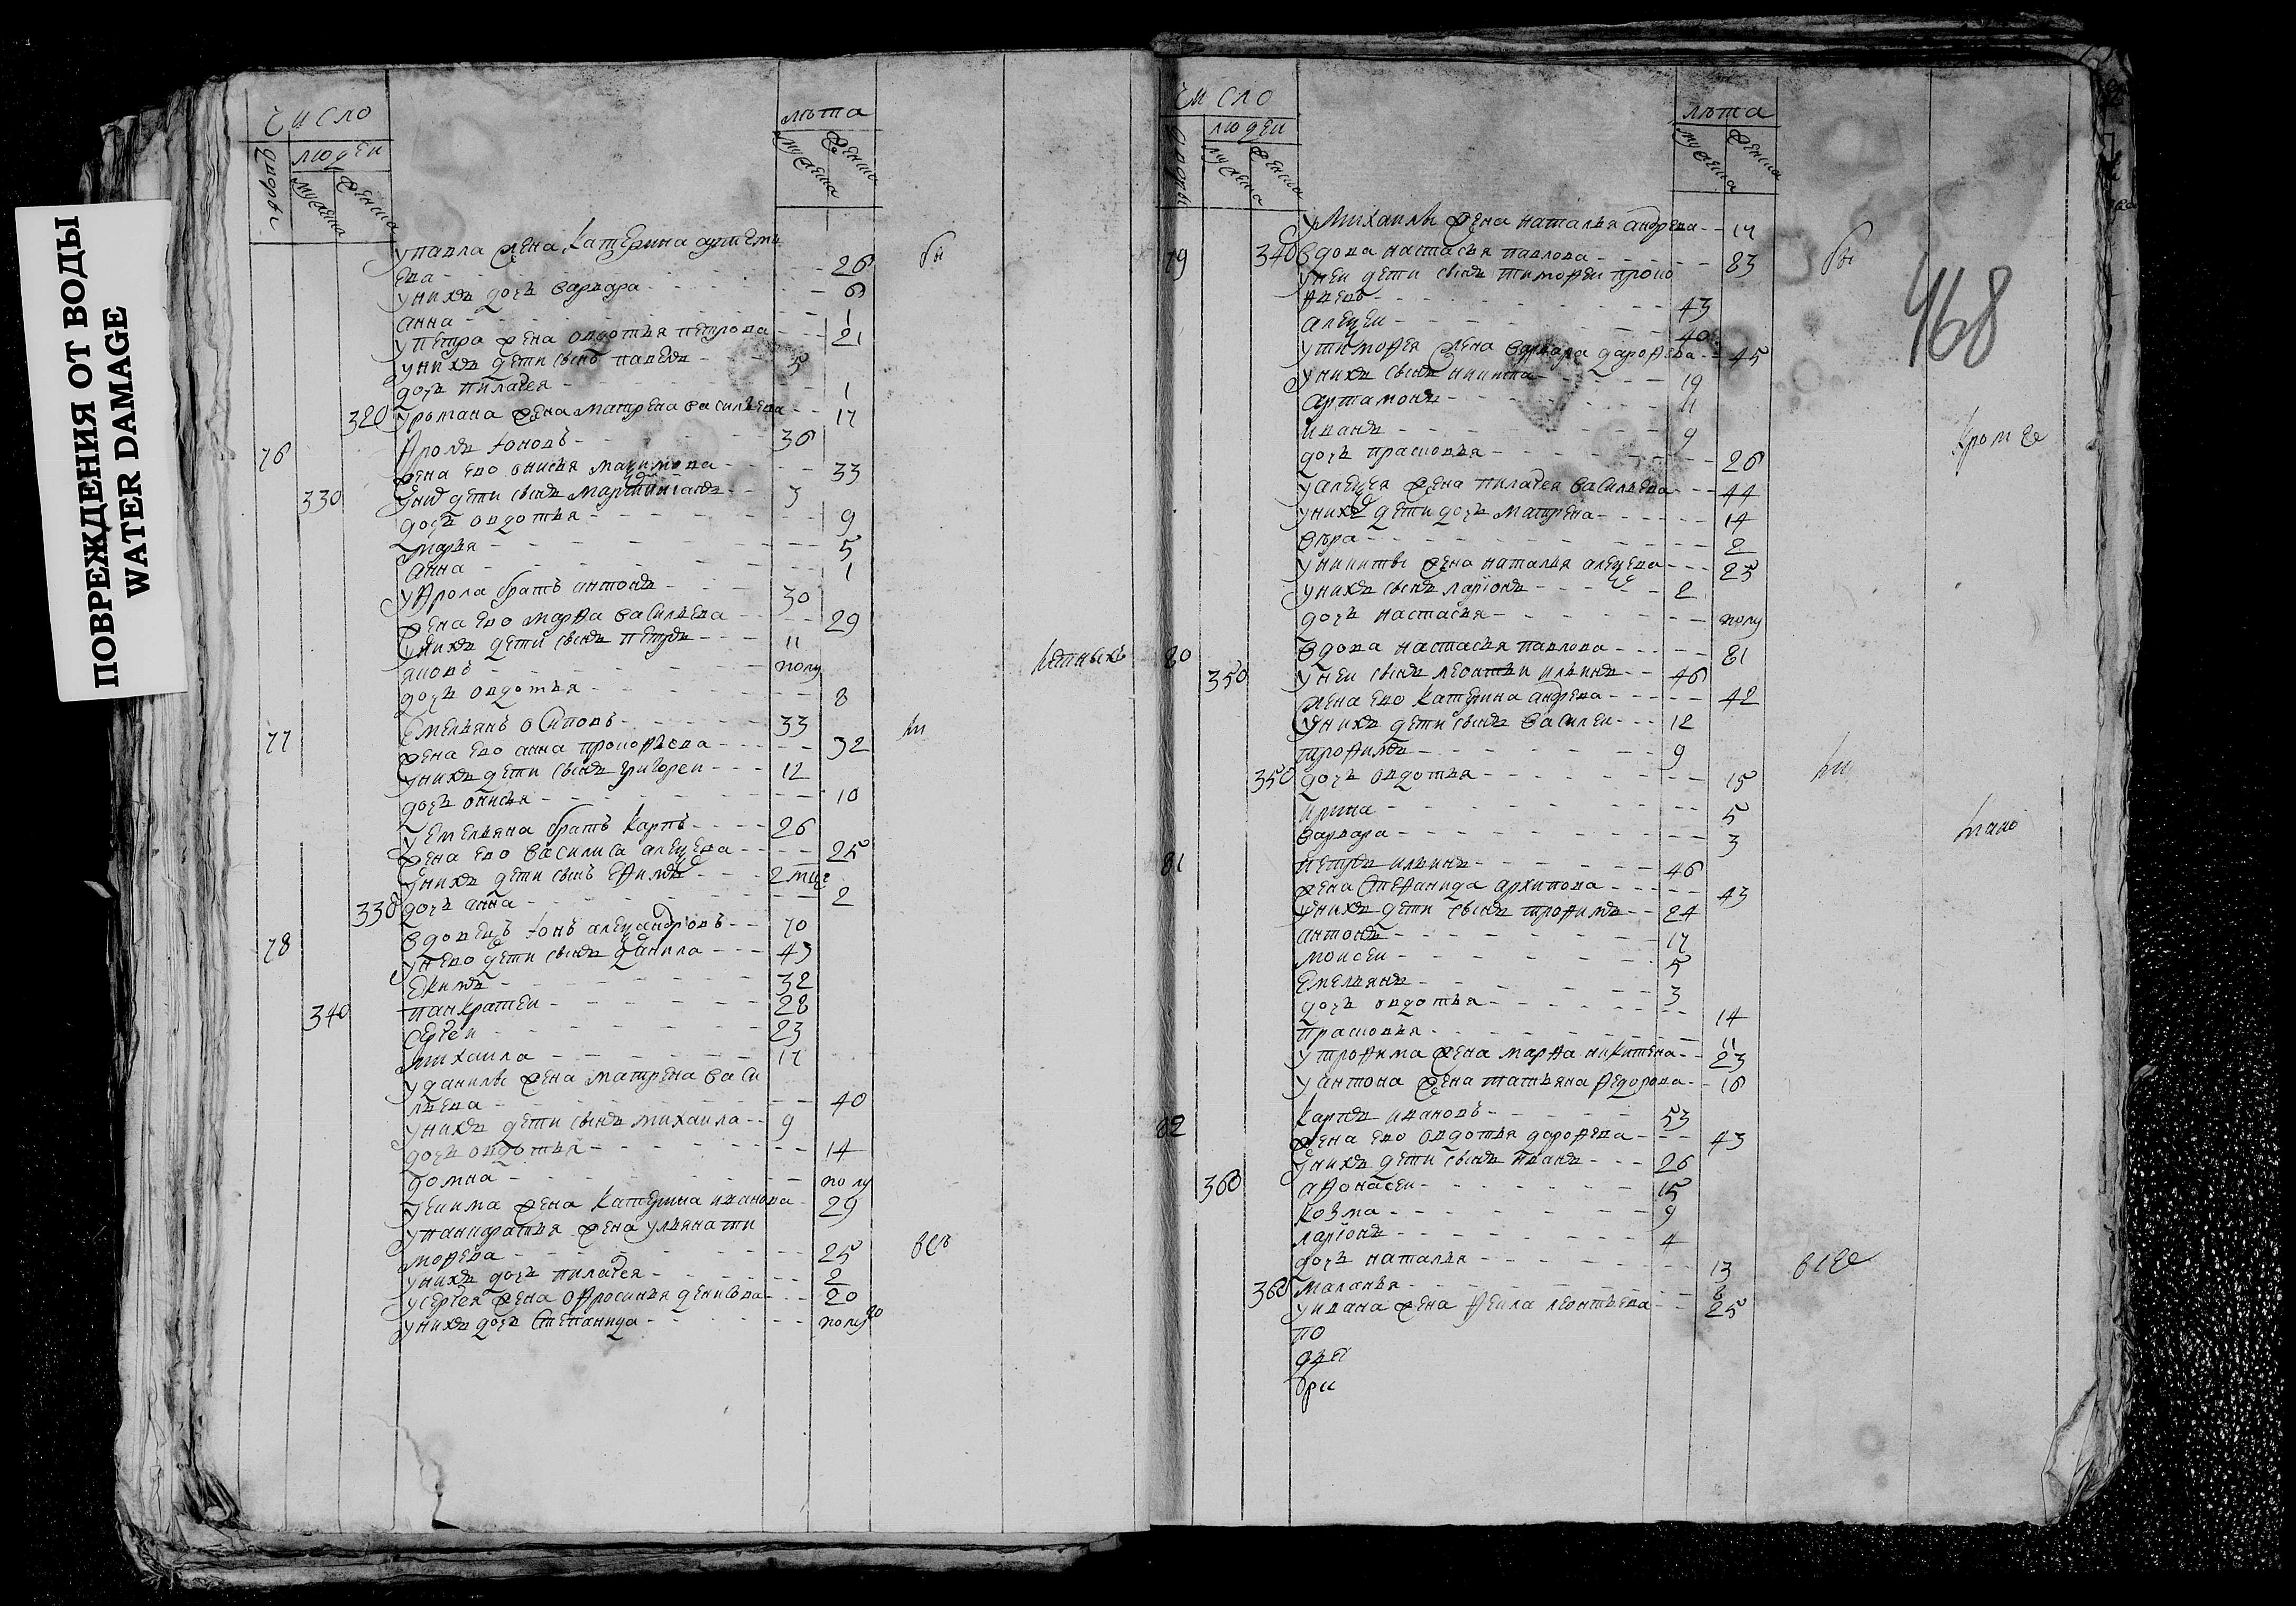 ПОВРЕЖДЕНИЯ ОТ ВОДЫ
WATER DAMAGE
число
люден
лѣта
дворы
мужеска
женска
мужеска
женска
у павла жена катерина артеми
ева 26 бы
у нихъ дочь варвара 6
анна 1
у петра жена овдотья петрова 21
у нихъ дети сынъ павелъ 5
дочь пилагея 1
320 у романа жена матрена васильева 17
76 Фролъ Iоновъ 36
жена ево анисья 33
330 дети сынъ 3
дочь овдотья 9
марья 5
анна 1
у Фрола братъ антонъ 30
жена ево марфа васильева 29
у нихъ дети сынъ петръ 11
яковъ полу
дочь овдотья 8
77 Емельянъ Осиповъ 33
жена ево анна прокофьева 32
у нихъ дети сынъ григореи 12
дочь анисья 10
у Емельяна братъ Карпъ 26
жена ево василиса алексеева 25
у нихъ дети сынъ Ефимъ 2 мце
330 дочь анна 2
78 вдовецъ Iонъ 70
у нево дети сынъ данила 43
Екимъ 32
340 панкратеи 28
сергеи 23
михаила 17
у данилы жена матрена васи
льева 40
у нихъ дети сынъ михаила 9
дочь овдотья 14
домна полу
у екима жена катерина иванова 29
у панкратья жена ульяна ти
мофева 25 все
у нихъ дочь пилагея 2
у сергея жена офросинья денисова 20
у нихъ дочь степанида полу
число
люден
лѣта
дворы
мужеска
женска
мужеска
женска
468
у Михаилы жена наталья андрева 17
79 340 вдова настасья павлова 83 бы
у неи дети сынъ тимофеи проко
фьевъ 43
алексеи 40
у тимофея жена варвара дарофева 45
у нихъ сынъ никита 19
артамонъ 11
иванъ 9
кроме
дочь прасковья 26
у алексея жена пилагея васильева 44
у нихъ дети дочь матрена 14
вѣра 2
у никиты жена наталья алексева 25
у нихъ сынъ ларiонъ 2
дочь настасья полу
80 вдова настасья павлова 81
350 у неи сынъ леонтеи ильинъ 46
жена ево катерина андрева 42
у нихъ дети сынъ василеи 12
трофимъ 9
350 дочь овдотья 15
ирина 5
варвара 3
81 петръ ильинъ 46
жена степанида архипова 43
у нихъ дети сынъ трофимъ 24
антонъ 17
моисеи 5
емельянъ 3
дочь овдотья 14
прасковья 11
у трофима жена марфа никитена 23
у антона жена татьяна федорова 16
82 карпъ ивановъ 53
жена ево овдотья дарофева 43
у нихъ дети сынъ иванъ 26
360 афонасеи 15
козма 9
ларiонъ 4
дочь наталья 13 все
360 маланья 6
у ивана жена фекла леонтьева 25
по